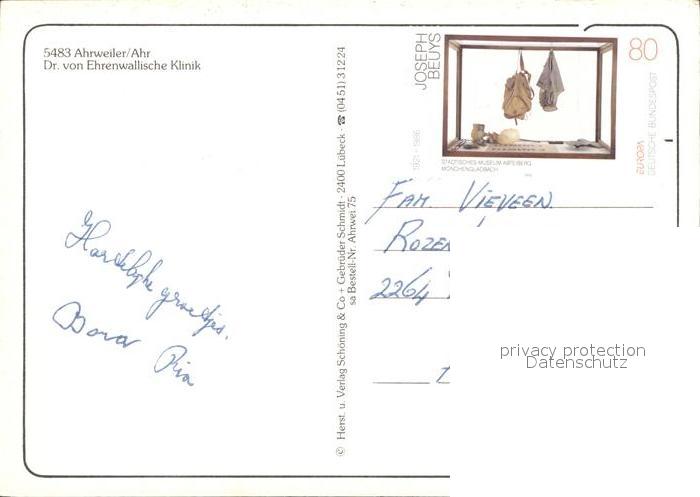 5483 Ahrweiler/Ahr
Dr. von Ehrenwallische Klinik
Hartelijke groetjes.
Dora
Ria
© Herst. u. Verlag Schöning & Co + Gebrüder Schmidt · 2400 Lübeck · ☎ (04 51) 3 12 24
sa Bestell-Nr. Ahrwei 75
JOSEPH
BEUYS
1921 - 1986
80
STÄDTISCHES MUSEUM ABTEIBERG
MÖNCHENGLADBACH
EUROPA
DEUTSCHE BUNDESPOST
FAM VIEVEEN.
ROZEN
2264
privacy protection
Datenschutz